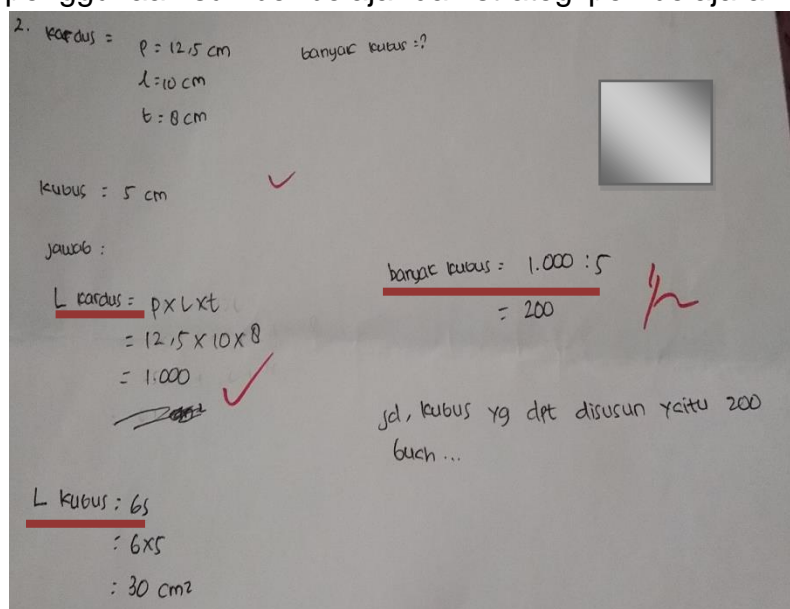 2. kardus =
p = 12,5 cm
l = 10 cm
t = 8 cm
banyak kubus =?
kubus = 5 cm
jawab :
L kardus = p x l x t
= 12,5 x 10 x 8
= 1.000
L kubus : 6s
: 6x5
: 30 cm2
banyak kubus = 1.000 : 5
= 200
jd, kubus yg dpt disusun yaitu 200
buah ...